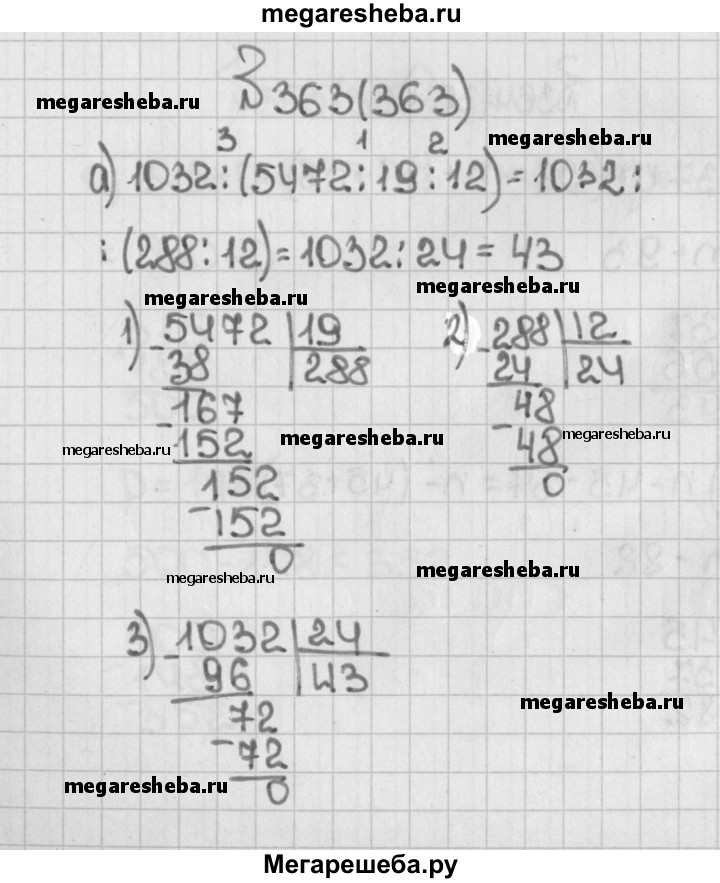 megaresheba.ru
megaresheba.ru № 363(363) megaresheba.ru
3 1 2
а) 1032:(5472:19:12)=1032:
:(288:12)=1032:24=43
megaresheba.ru megaresheba.ru
1) - 5472 | 19 2) - 288 | 12
38 | 288 24 | 24
- 167 - 48
megaresheba.ru 152 megaresheba.ru 48 megaresheba.ru
- 152 0
152
0
megaresheba.ru megaresheba.ru
3) - 1032 | 24
96 | 43
megaresheba.ru
- 72
72
megaresheba.ru 0
Мегарешеба.ру